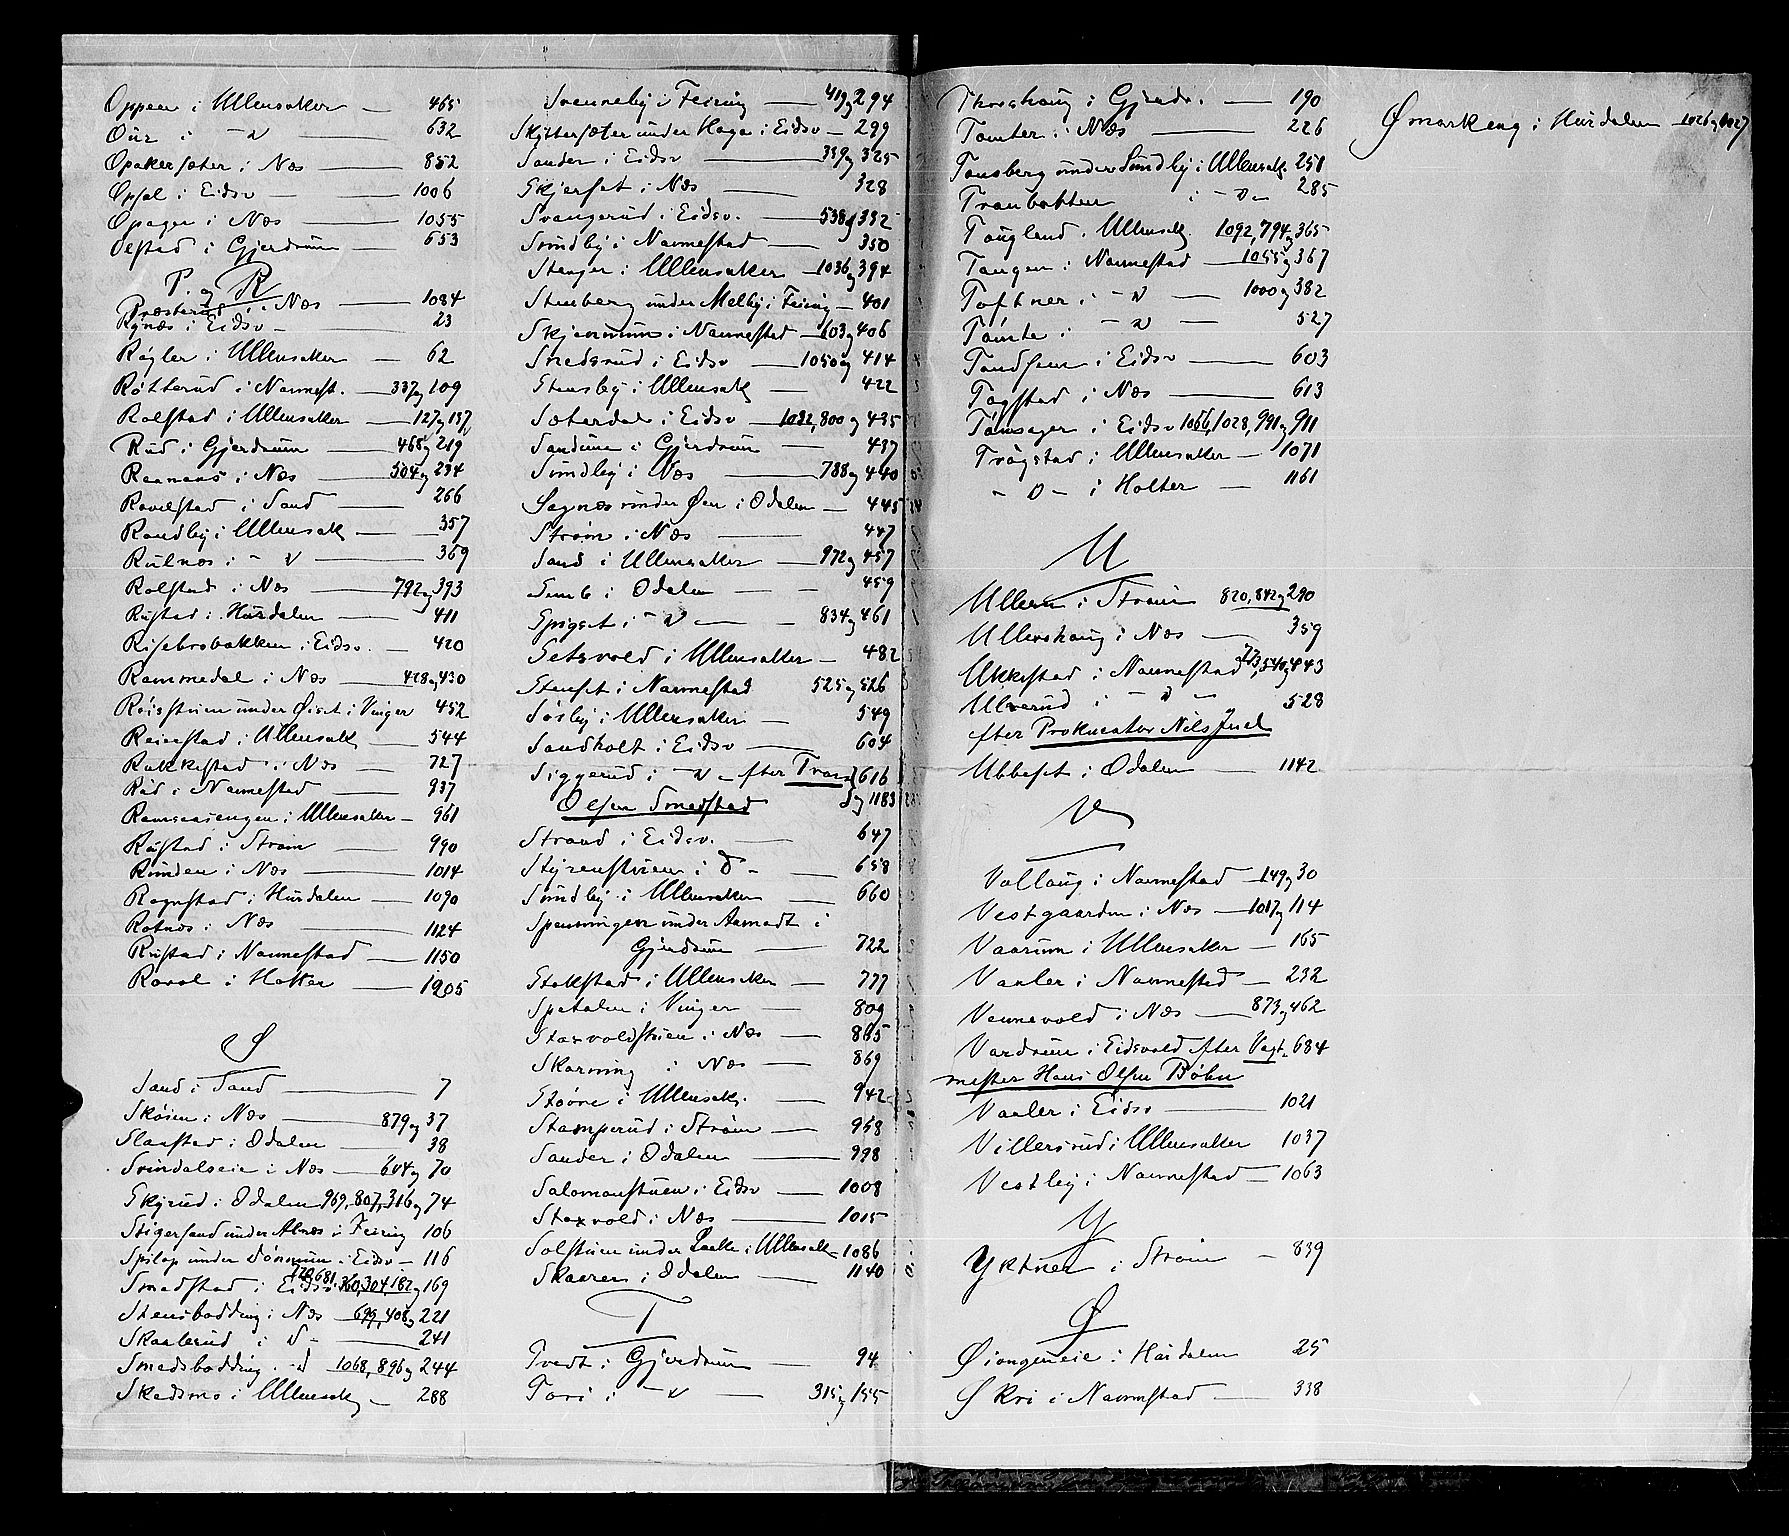 Oppen i Ullensaker — 465
Our i — " — 632
Opakersæter i Næs — 852
Opsal i Eidsv — 1006
Opagen i Næs — 1055
Olstad i Gjerdrum — 653
P. og R
Præsterud i Næs — 1084
Rynæs i Eidsv — 23
Røgler i Ullensaker — 62
Røtterud i Nannest. — 337 og 109
Rolstad i Ullensaker — 127 og 137
Rud i Gjerdrum — 468 og 219
Reenaas i Næs — 504 og 234
Rovelstad i Sand — 266
Randby i Ullensak — 357
Rulnæs i — " — 369
Rolstad i Næs — 792 og 393
Rustad i Hurdalen — 411
Risebrobakken i Eidsv. — 420
Rammedal i Næs — 428 og 430
Røisstuen under Øiset i Vinger 452
Reierstad i Ullensak — 544
Rakkestad i Næs — 727
Rud i Nannestad — 937
Ramsaasengen i Ullensaker — 961
Rustad i Strøm — 990
Runden i Næs — 1014
Rognstad i Hurdalen — 1090
Rotnæs i Næs — 1124
Rustad i Nannestad — 1150
Rovol i Holter — 1205
S
Sand i Sand — 7
Skøien i Næs — 879 og 37
Slaastad i Odalen — 38
Svindalseie i Næs — 604 og 70
Skyrud i Odalen 969, 807, 316 og 74
Stigersand under Alnæs i Feiring 106
Spilop under Dønnum i Eidsv — 116
Smedstad i Eidsv 720, 681, 360, 304, 182 og 169
Stensbodding i Næs — 699, 408 og 221
Skaalerud i D — 241
Smedsbodding D 1068, 896 og 244
Skedsmo i Ullensak — 288
Svenneby i Feiring — 419 og 294
Skyttersæter under Haga i Eidsv — 299
Sander i Eidsv — 339 og 325
Skjerset i Næs — 328
Svangerud i Eidsv. — 538 og 332
Sundby i Nannestad — 350
Stenger i Ullensaker — 1036 og 394
Stenberg under Melby i Feiring — 401
Skjennum i Nannestad — 603 og 406
Smedsrud i Eidsv — 1050 og 414
Stensby i Ullensak — 422
Sæterdal i Eidsv — 1032, 800 og 435
Sandum i Gjerdrum — 437
Sundby i Næs — 788 og 440
Sagnæs under Øen i Odalen — 445
Strøm i Næs — 447
Sand i Ullensaker — 972 og 457
Semb i Odalen — 459
Spigset i — " — 834 og 461
Setsvold i Ullensaker — 482
Stenset i Nannestad 525 og 526
Søsby i Ullensaker — 549
Sandholt i Eidsv — 604
Siggerud i — " — efter Trond } 616
Olsen Smedstad og 1183
Strand i Eidsv. — 647
Styrenstuen i D — 658
Sundby i Ullensaker — 660
Spenningen under Aamodt i
Gjerdrum — 722
Stokstad i Ullensaker — 777
Spetalen i Vinger — 809
Staxvoldstuen i Næs — 865
Skarning i Næs — 869
Støvre i Ullensak. — 942
Stamperud i Strøm — 968
Sander i Odalen — 998
Salomonstuen i Eidsv — 1008
Staxvold i Næs — 1015
Solstuen under Laake i Ullensak — 1086
Skaaren i Odalen — 1140
T
Tvedt i Gjerdrum — 94
Tori i — " — 315 og 155
Throshaug i Gjerdr. — 190
Tomter i Næs — 226
Tonsberg under Sundby i Ullensak. 251
Tranbakken i — " — 285
Taugland i Ullensak. 1092, 794 og 365
Tangen i Nannestad — 1055 og 367
Toftner i — " — 1000 og 382
Tømte i — " — 527
Tandsem i Eidsv — 603
Togstad i Næs — 613
Tømsager i Eidsv 1066, 1028, 991 og 911
Trøgstad i Ullensaker — 1071
— " — i Holter — 1161
U
Ullern i Strøm 820, 842 og 290
Ullershaug i Næs — 359
Ukkestad i Nannestad 773, 540 og 443
Ulverud i — " — 528
efter Prokurator Nils Juel
Ubbeset i Odalen — 1142
V
Vollaug i Nannestad — 149 og 30
Vestgaarden i Næs — 1017 og 114
Vaarum i Ullensaker — 165
Vaaler i Nannestad — 232
Vennevold i Næs — 873 og 462
Vardrum i Eidsvold efter Vagt- 684
mester Hans Olsen Bøhn
Vaaler i Eidsv — 1021
Villersrud i Ullensaker 1037
Vestby i Nannestad — 1063
Y
Yktner i Strøm — 839
Ø
Øiongeneie i Hurdalen 25
Økri i Nannestad — 338
Ømarkeng i Hurdalen — 1026 og 1027